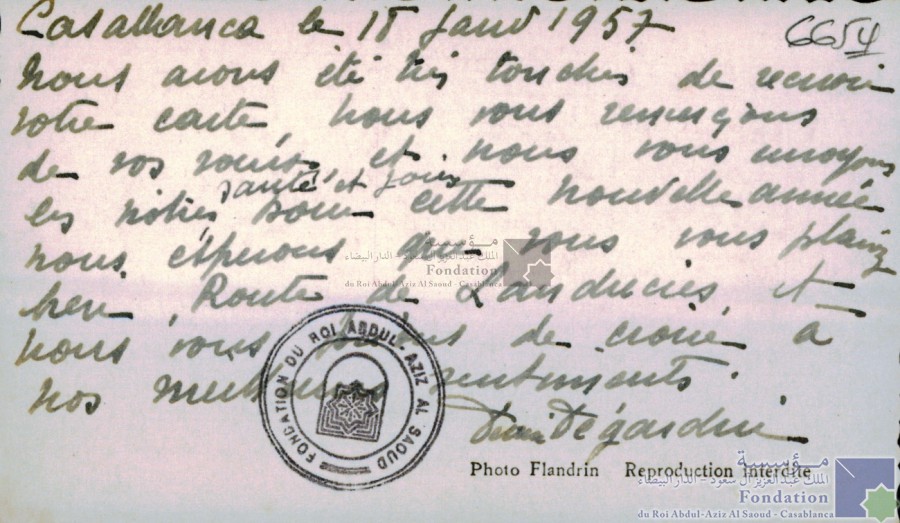 Casablanca le 18 Janv 1957
6654
nous avons été très touchés de recevoir
votre carte, nous vous remerçions
de vos voeux, et nous vous envoyons
santé, et joies
les notres pour cette nouvelle année
nous espérons que vous vous plaisez
bien Route de Landrecies et
nous vous prions de croire à
nos meilleurs sentiments.
Dégardin
FONDATION DU ROI ABDUL-AZIZ AL SAOUD
Photo Flandrin Reproduction Interdite
مؤسسة
الملك عبد العزيز آل سعود - الدار البيضاء
Fondation
du Roi Abdul-Aziz Al Saoud - Casablanca
مؤسسة
الملك عبد العزيز آل سعود - الدار البيضاء
Fondation
du Roi Abdul-Aziz Al Saoud - Casablanca